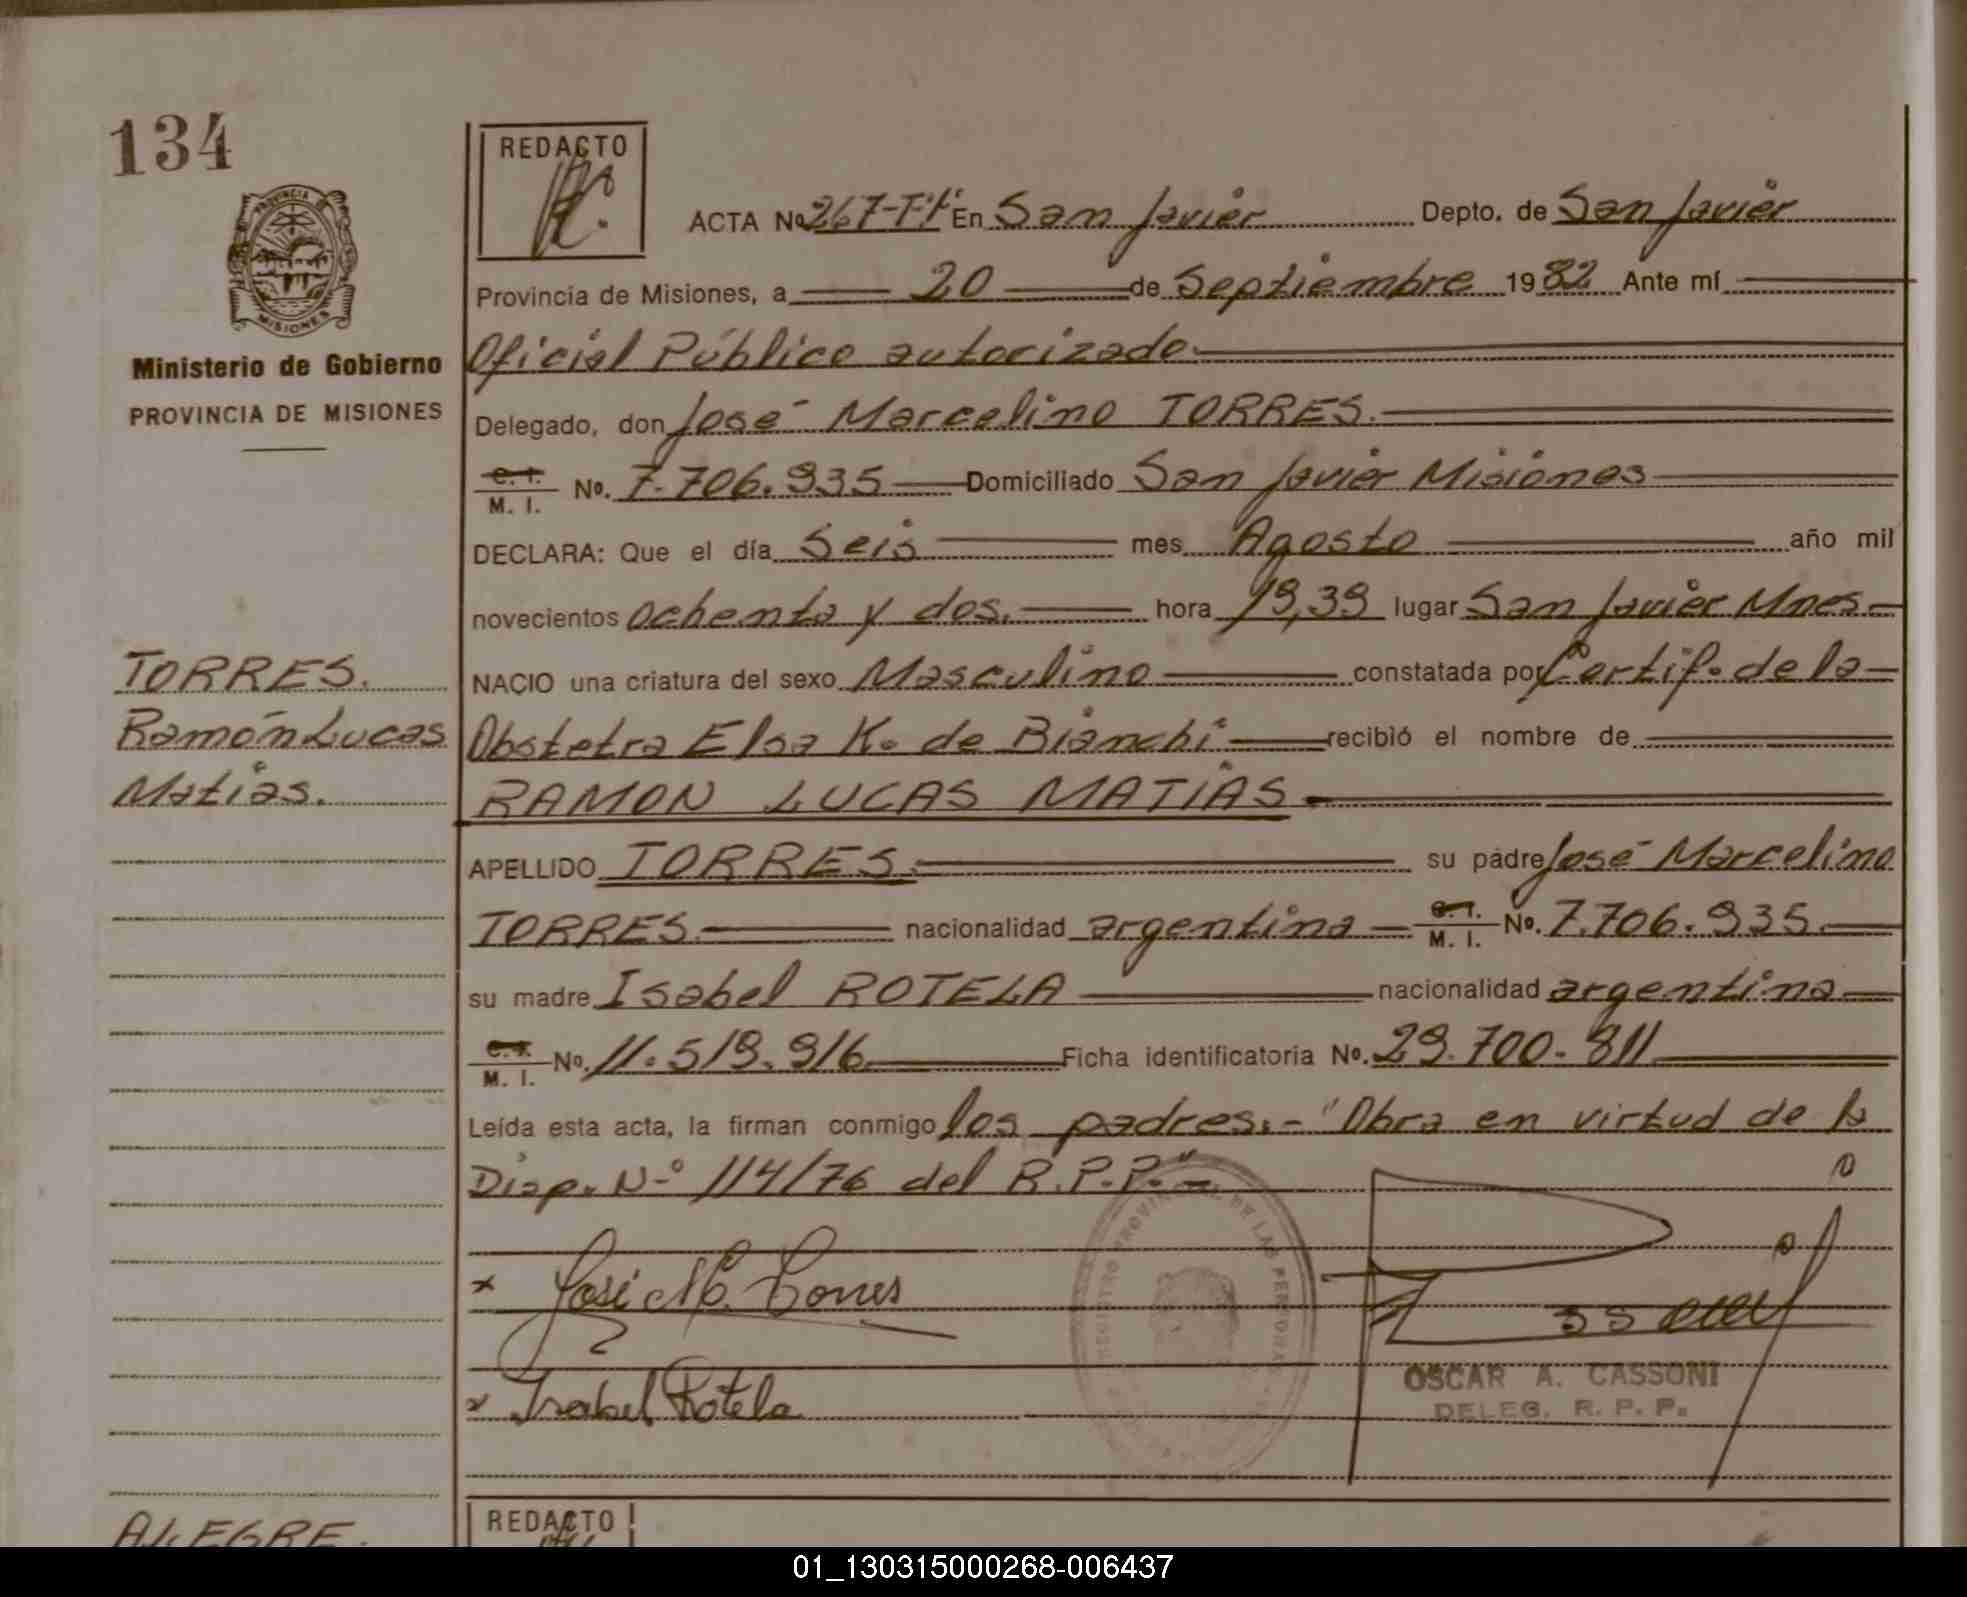 134
REDACTO
ACTA Nº 267-Tº1º En San Javier Depto. de San Javier
PROVINCIA DE
MISIONES
Provincia de Misiones, a 20 de Septiembre 1982 Ante mí
Ministerio de Gobierno
Oficial Público autorizado.
PROVINCIA DE MISIONES
Delegado, don José Marcelino TORRES.
C. I.
M. I. Nº. 7.706.935 Domiciliado San Javier Misiones
DECLARA: Que el día Seis mes Agosto año mil
novecientos ochenta y dos. hora 19,39 lugar San Javier Mnes
TORRES.
NACIO una criatura del sexo Masculino constatada por Certif. de la
Ramón Lucas
Obstetra Elsa K. de Bianchi recibió el nombre de
Matías.
RAMON LUCAS MATIAS
APELLIDO TORRES. su padre José Marcelino
TORRES. nacionalidad argentina C. I. M. I. Nº. 7.706.935.
su madre Isabel ROTELA nacionalidad argentina
C. I.
M. I. Nº. 11.519.916 Ficha identificatoria Nº. 29.700.811
Leída esta acta, la firman conmigo los padres.- "Obra en virtud de la
Disp. Nº 114/76 del R.P.P."-
REGISTRO PROVINCIAL DE LAS PERSONAS
x José M. Torres
OSCAR A. CASSONI
x Isabel Rotela
DELEG. R. P. P.
REDACTO
ALEGRE.
01_130315000268-006437